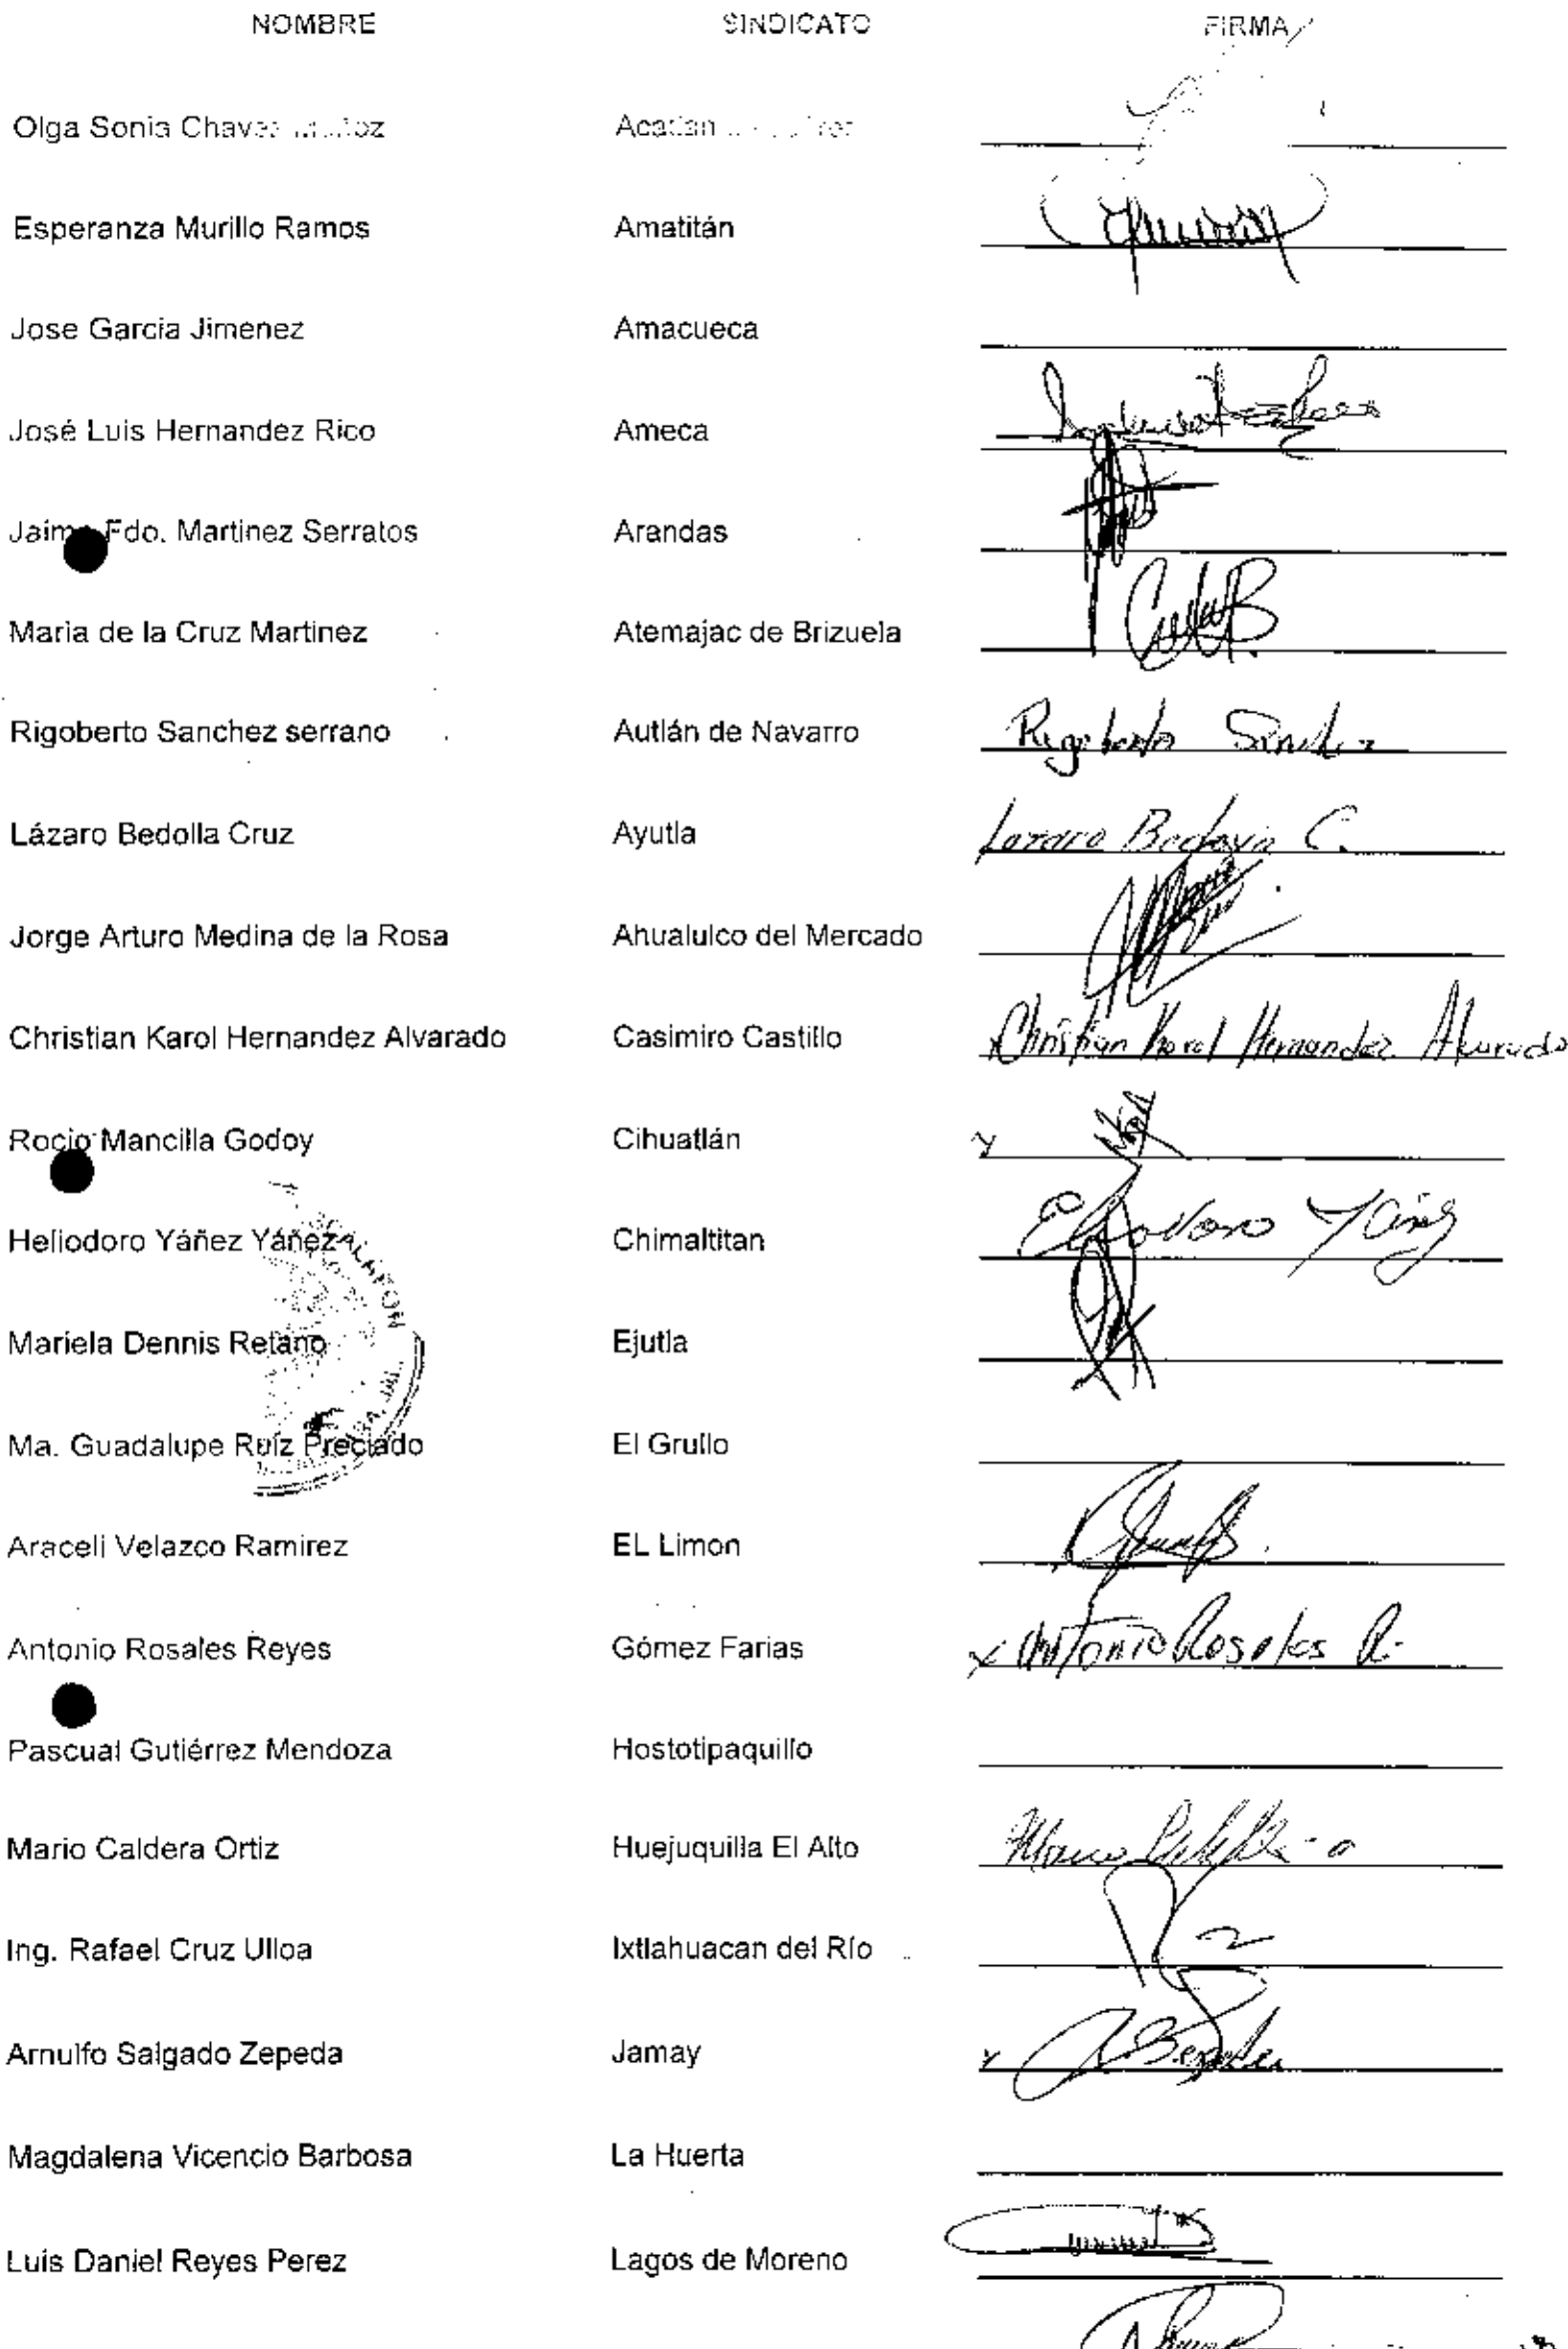 NOMBRE SINDICATO FIRMA
Olga Sonia
Esperanza Murillo Ramos Amatitán
Jose Garcia Jimenez Amacueca
José Luis Hernandez Rico Ameca
Fdo. Martinez Serratos Arandas
Maria de la Cruz Martinez Atemajac de Brizuela
Rigoberto Sanchez serrano Autlán de Navarro Rigoberto
Lázaro Bedolla Cruz Ayutla C.
Jorge Arturo Medina de la Rosa Ahualulco del Mercado
Christian Karol Hernandez Alvarado Casimiro Castillo Christian Karol Hernandez Alvarado
Rocio Mancilla Godoy Cihuatlán
Heliodoro Yáñez Yáñez Chimaltitan
Mariela Dennis Retano Ejutla
Ma. Guadalupe Ruíz Preciado El Grullo
Araceli Velazco Ramirez EL Limon
Antonio Rosales Reyes Gómez Farias Antonio Rosales R.
Pascual Gutiérrez Mendoza Hostotipaquillo
Mario Caldera Ortiz Huejuquilla El Alto
Ing. Rafael Cruz Ulloa Ixtlahuacan del Río
Arnulfo Salgado Zepeda Jamay
Magdalena Vicencio Barbosa La Huerta
Luis Daniel Reyes Perez Lagos de Moreno